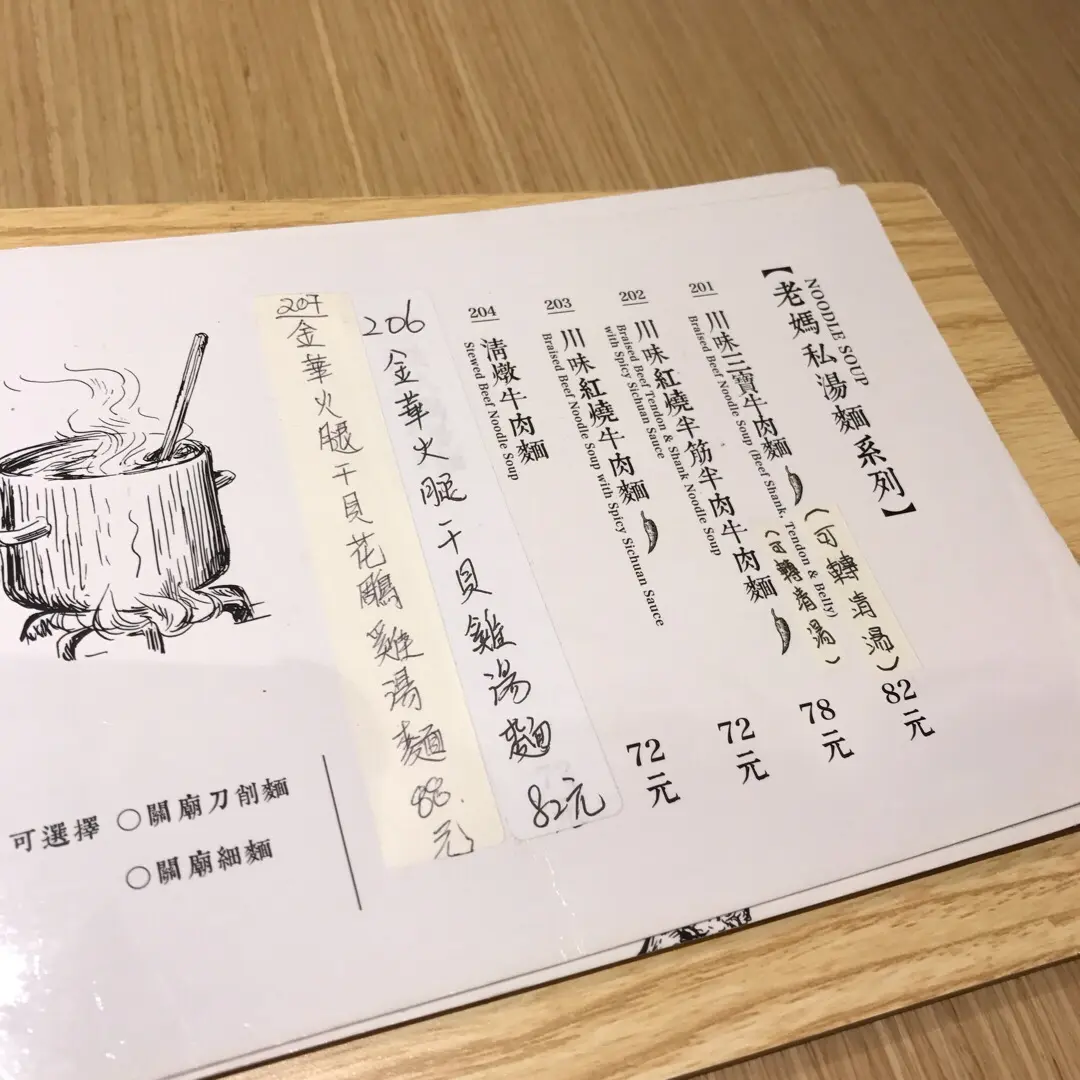 【老媽私湯麵系列】
NOODLE SOUP
201
川味三寶牛肉麵
(可轉清湯)
82元
Braised Beef Noodle Soup (Beef Shank, Tendon & Belly)
202
川味紅燒半筋半肉牛肉麵
(可轉清湯)
78元
Braised Beef Tendon & Shank Noodle Soup
with Spicy Sichuan Sauce
203
川味紅燒牛肉麵
72元
Braised Beef Noodle Soup with Spicy Sichuan Sauce
204
清燉牛肉麵
72元
Stewed Beef Noodle Soup
206
金華火腿干貝雞湯麵
82元
207
金華火腿干貝花雕雞湯麵
88元
可選擇 ○關廟刀削麵
○關廟細麵